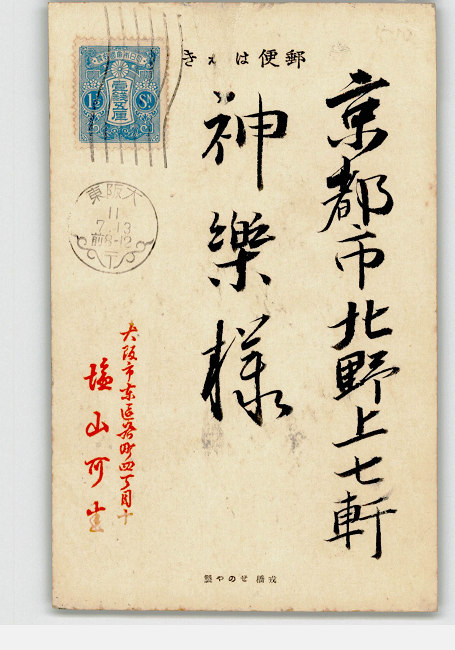 郵便はがき
壹錢五厘
1½ Sn
大阪東
11
7.13
前8-12
京都市北野上七軒
神樂様
大阪市東區谷町四丁目十
塩山可生
戎橋 せのや製